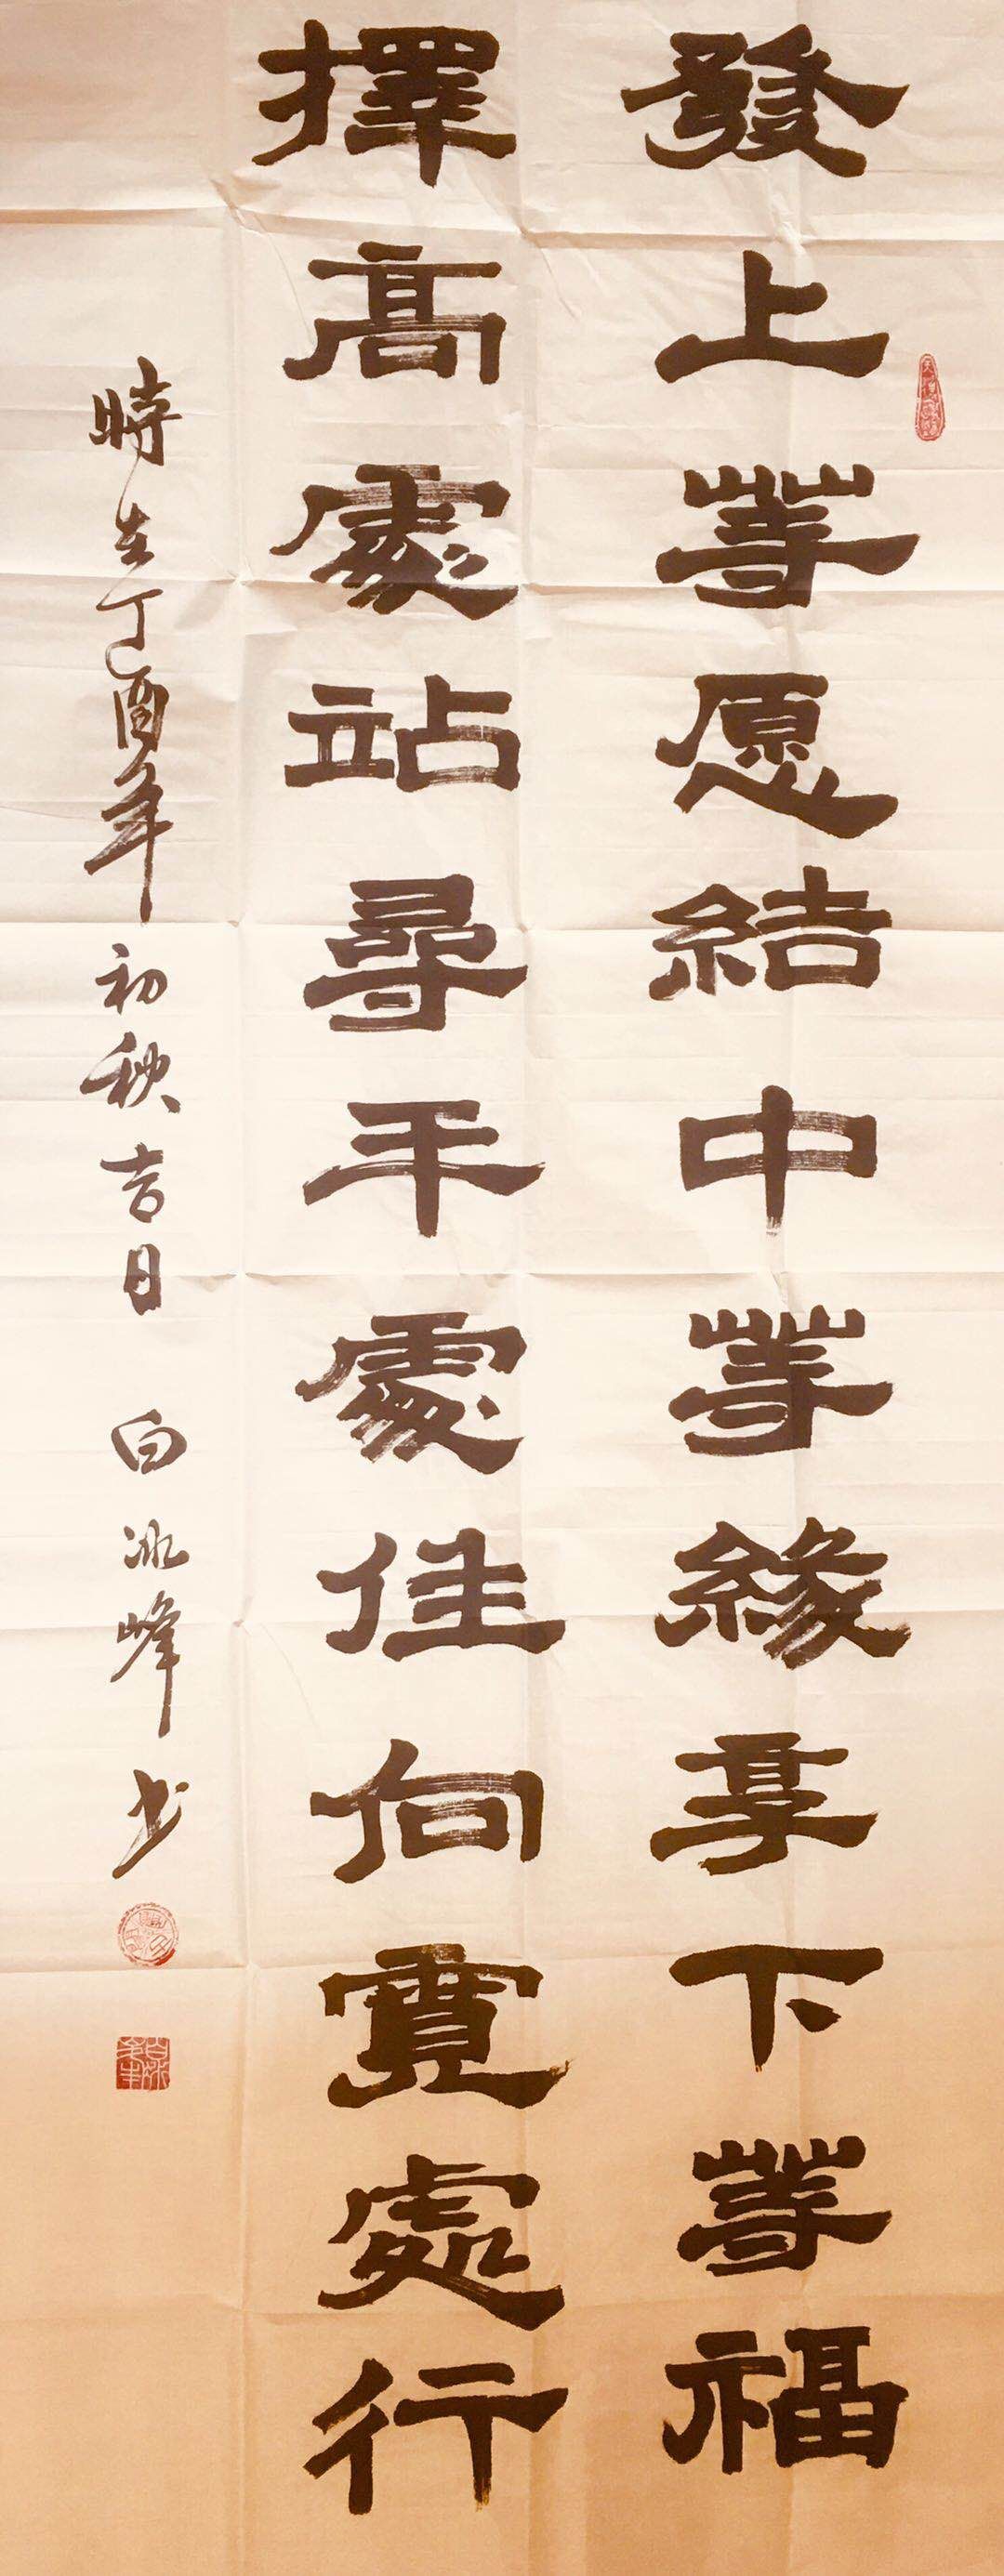 發上等愿結中等緣享下等福
擇高處站尋平處住向寬處行
時在丁酉年初秋吉日 白冰峰书